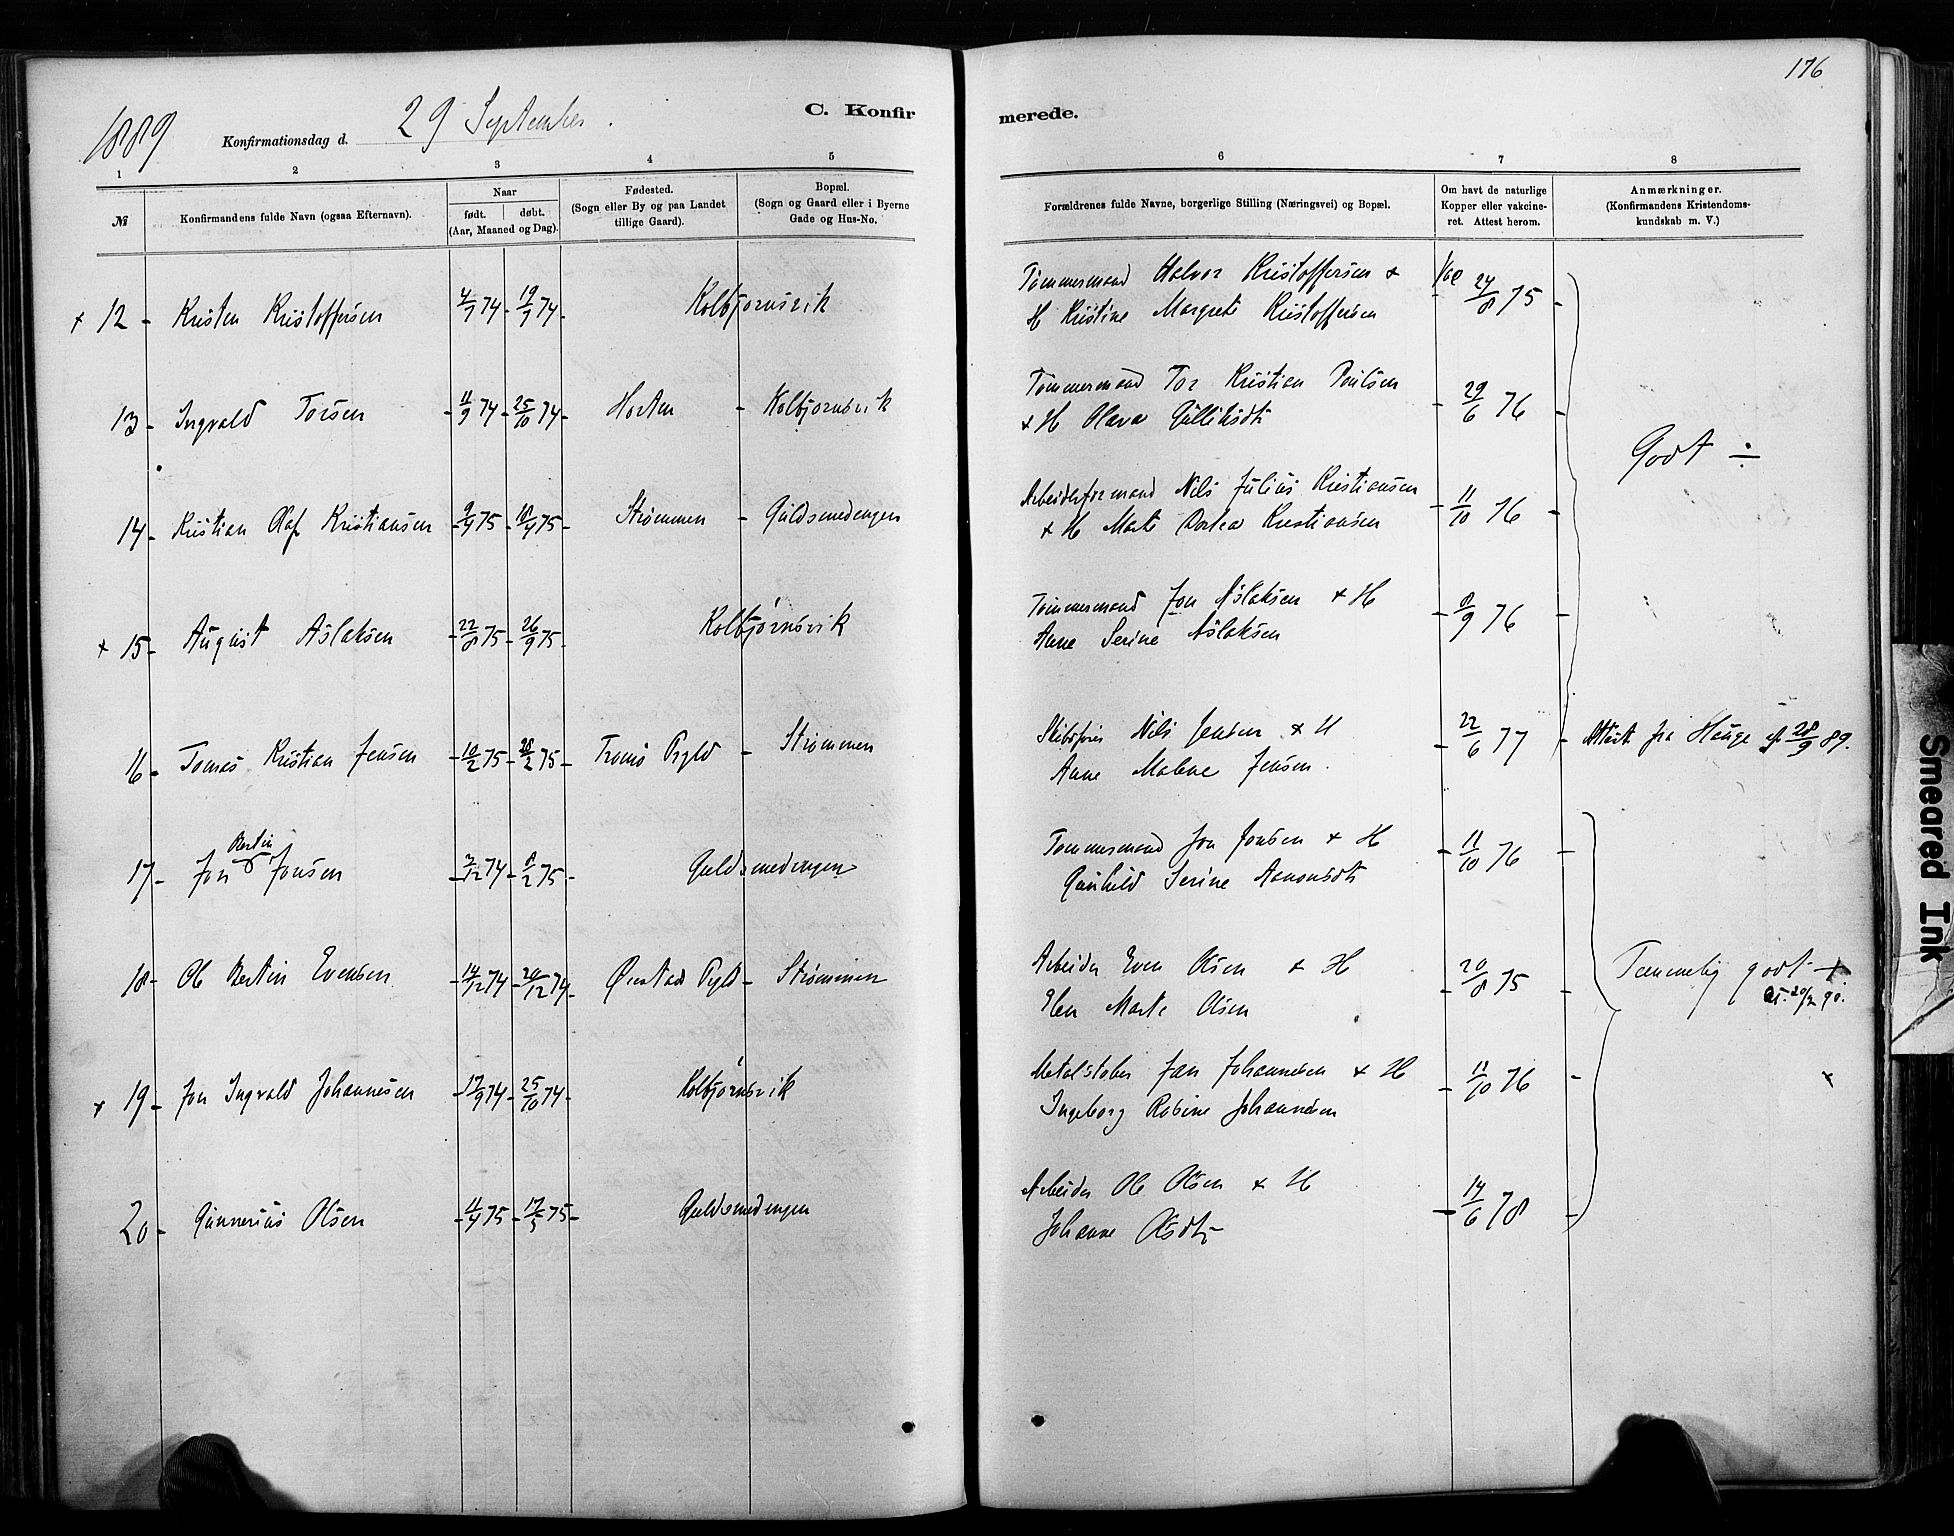 176
1889
Konfirmationsdag d. 29 September.
C. Konfirmerede.
1 2 3 4 5 6 7 8
№
Konfirmandens fulde Navn (ogsaa Efternavn).
Naar
født. døbt.
(Aar, Maaned og Dag).
Fødested.
(Sogn eller By og paa Landet
tillige Gaard).
Bopæl.
(Sogn og Gaard eller i Byerne
Gade og Hus-No.
Forældrenes fulde Navne, borgerlige Stilling (Næringsvei) og Bopæl.
Om havt de naturlige
Kopper eller vakcine-
ret. Attest herom.
Anmærkninger.
(Konfirmandens Kristendoms-
kundskab m. V.)
x 12 - Kristen Kristoffersen 4/7 74 - 19/7 74 - Kolbjornsvik Tømmermand Halvor Kristoffersen + Vac 24/8 75 -
H Kristine Margrete Kristoffersen
13 - Ingvald Torsen - 11/9 74 - 25/10 74 - Horten - Kolbjornsvik Tømmermand Tor Kristian Poulsen - 29/6 76 -
+ H Olava Gulliksdt
Godt ÷
14 - Kristian Olaf Kristiansen - 9/4 75 - 18/4 75 - Strømmen - Guldsmedengen Arbeidsformand Nils Julius Kristiansen - 11/10 76 -
+ H Marte Dortea Kristiansen
x 15 - August Aslaksen - 22/8 75 - 26/9 75 - Kolbjørnsvik Tømmermand Jon Aslaksen + H - 8/9 76 -
Anne Serine Aslaksen
16 - Tomas Kristian Jensen - 10/2 75 - 28/2 75 - Tromø Pgld - Strømmen Skibsfører Nils Jensen + H - 22/6 77 - Attest fra Hauge af 28/9 89.
Anne Malene Jensen.
Bertin
17 - Jon Jonsen - 7/12 74 - 8/2 75 - Guldsmedengen Tømmermand Jon Jonsen + H - 11/10 76 -
Gunhild Serine Aanonsdt
18 - Ole Bertin Evensen - 14/12 74 - 20/12 74 - Øiestad Pgld - Strømmen Arbeider Even Olsen + H - 20/8 75 - Temmelig godt +
Elen Marte Olsen
At. 20/2 90.
x 19 - Jon Ingvald Johannesen - 17/9 74 - 25/10 74 - Kolbjørnsvik Metalstøber Jan Johannesen + H - 11/10 76 - x
Ingeborg Rosine Johannesen
20 - Gunnerius Olsen - 11/4 75 - 17/5 75 - Guldsmedengen Arbeider Ole Olsen + H - 14/6 78 -
Johanne Olsdt
Smeared Ink